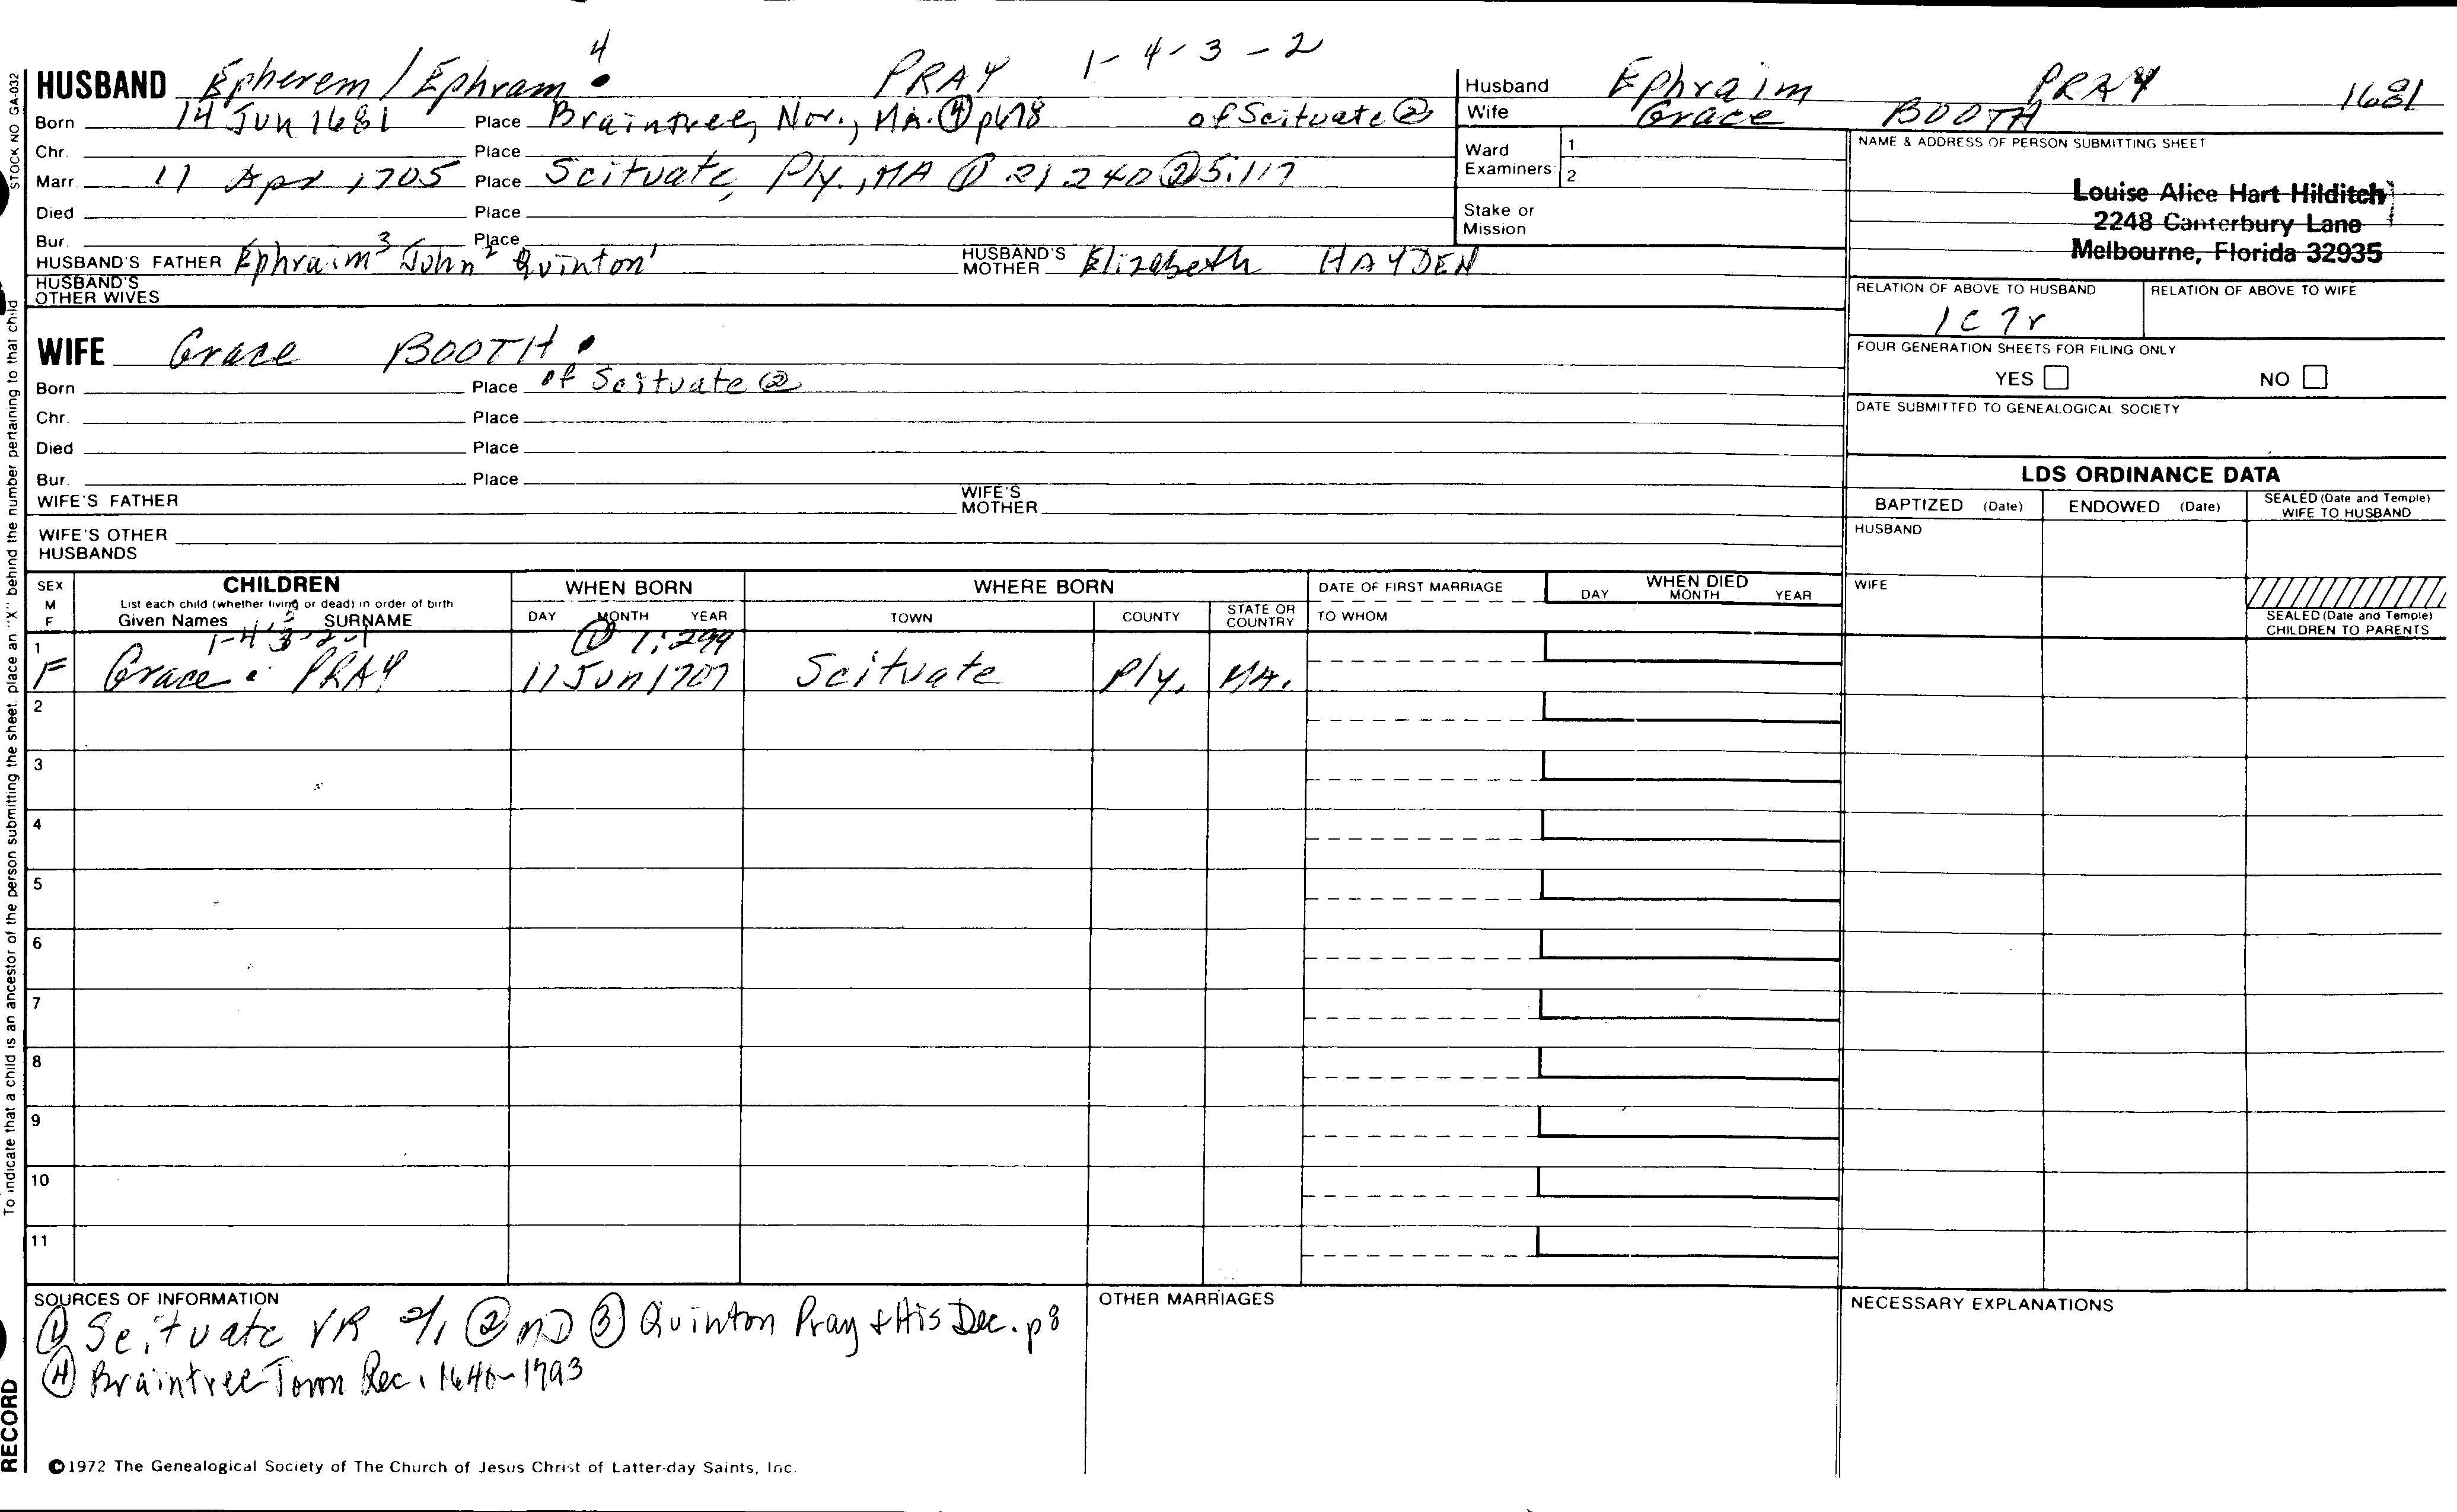 1-4-3-2
HUSBAND Epherem / Ephram 4 PRAY
Born 14 Jun 1681 Place Braintree, Nor., MA. ④ p678 of Scituate ②
Chr. Place
Marr. 11 Apr 1705 Place Scituate, Ply., MA ① 2; 240 ② 5:117
Died Place
Bur. Place
HUSBAND'S FATHER Ephraim 3 John 2 Quinton 1 HUSBAND'S MOTHER Elizabeth HAYDEN
HUSBAND'S OTHER WIVES
WIFE Grace BOOTH
Born Place of Scituate ②
Chr. Place
Died Place
Bur. Place
WIFE'S FATHER WIFE'S MOTHER
WIFE'S OTHER HUSBANDS
Husband Ephraim PRAY 1681
Wife Grace BOOTH
Ward Examiners: 1. 2.
Stake or Mission
NAME & ADDRESS OF PERSON SUBMITTING SHEET
Louise Alice Hart Hilditch
2248 Canterbury Lane
Melbourne, Florida 32935
RELATION OF ABOVE TO HUSBAND RELATION OF ABOVE TO WIFE
1C7r
FOUR GENERATION SHEETS FOR FILING ONLY
YES NO
DATE SUBMITTED TO GENEALOGICAL SOCIETY
LDS ORDINANCE DATA
BAPTIZED (Date) ENDOWED (Date) SEALED (Date and Temple) WIFE TO HUSBAND
HUSBAND
WIFE
SEALED (Date and Temple) CHILDREN TO PARENTS
SEX M F CHILDREN WHEN BORN WHERE BORN DATE OF FIRST MARRIAGE WHEN DIED
List each child (whether living or dead) in order of birth
Given Names SURNAME DAY MONTH YEAR TOWN COUNTY STATE OR COUNTRY TO WHOM DAY MONTH YEAR
1 1-4-3-2-1 ① 1:299
F Grace PRAY 11 Jun 1707 Scituate Ply. MA.
2
3
4
5
6
7
8
9
10
11
SOURCES OF INFORMATION
① Scituate VR 2/1 ② MD ③ Quinton Pray & His Dec. p8
④ Braintree Town Rec. 1640-1793
OTHER MARRIAGES
NECESSARY EXPLANATIONS
©1972 The Genealogical Society of The Church of Jesus Christ of Latter-day Saints, Inc.
STOCK NO GA-032
To indicate that a child is an ancestor of the person submitting the sheet, place an "X" behind the number pertaining to that child
RECORD